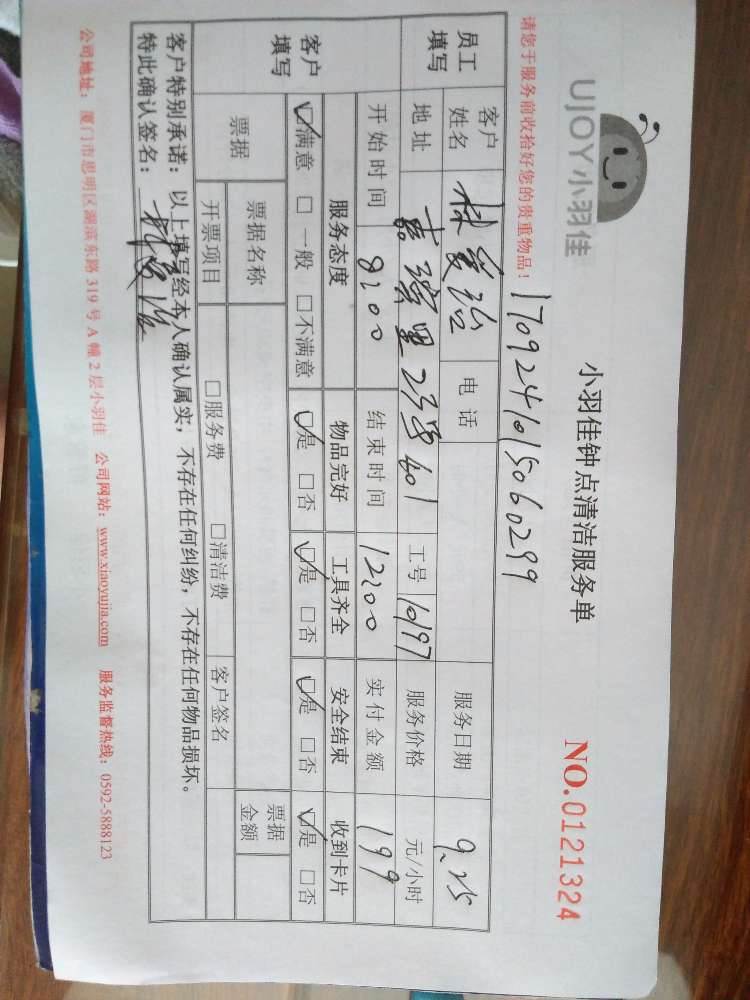 UJOY小羽佳
小羽佳钟点清洁服务单
NO.0121324
请您于服务前收拾好您的贵重物品！
1709241015060299
员工填写 客户姓名 林爱治 电话 服务日期 9.25
地址 嘉滨里23号601 工号 10197 服务价格 元/小时
开始时间 8:00 结束时间 12:00 实付金额 199
客户填写 服务态度 物品完好 工具齐全 安全结束 收到卡片
☑满意 □一般 □不满意 ☑是 □否 ☑是 □否 ☑是 □否 ☑是 □否
票据 票据名称 票据金额
开票项目 □服务费 □清洁费 客户签名
客户特别承诺：以上填写经本人确认属实，不存在任何纠纷，不存在任何物品损坏。
特此确认签名：
公司地址：厦门市思明区湖滨东路319号A幢2层小羽佳 公司网站：www.xiaoyujia.com 服务监督热线：0592-5888123